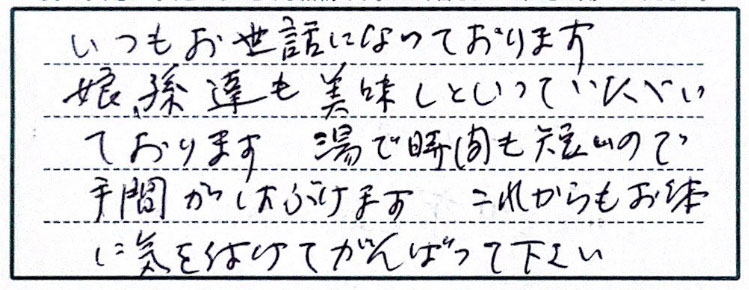 いつもお世話になっております
娘、孫達も美味しといっていただい
ております 湯で時間も短いので
手間がはぶけます これからもお体
に気を付けてがんばって下さい